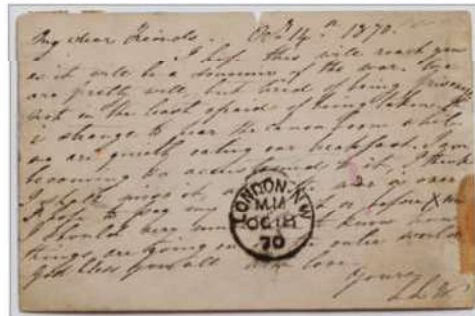 My dear Friends. Oct 14th 1870.
I hope this will reach you
as it will be a souvenir of the war. We
are pretty well, but tired of being prisoners
not in the least afraid of being taken.
is strange to hear the canon boom while
we are quietly eating our breakfast. I am
becoming so accustomed to it, I think
I shall miss it, war is over
I hope to or before Xmas
I should very know how
things are going on outer world
God bless you all love.
Yours
LONDON·N.W
MM
OC 18
70